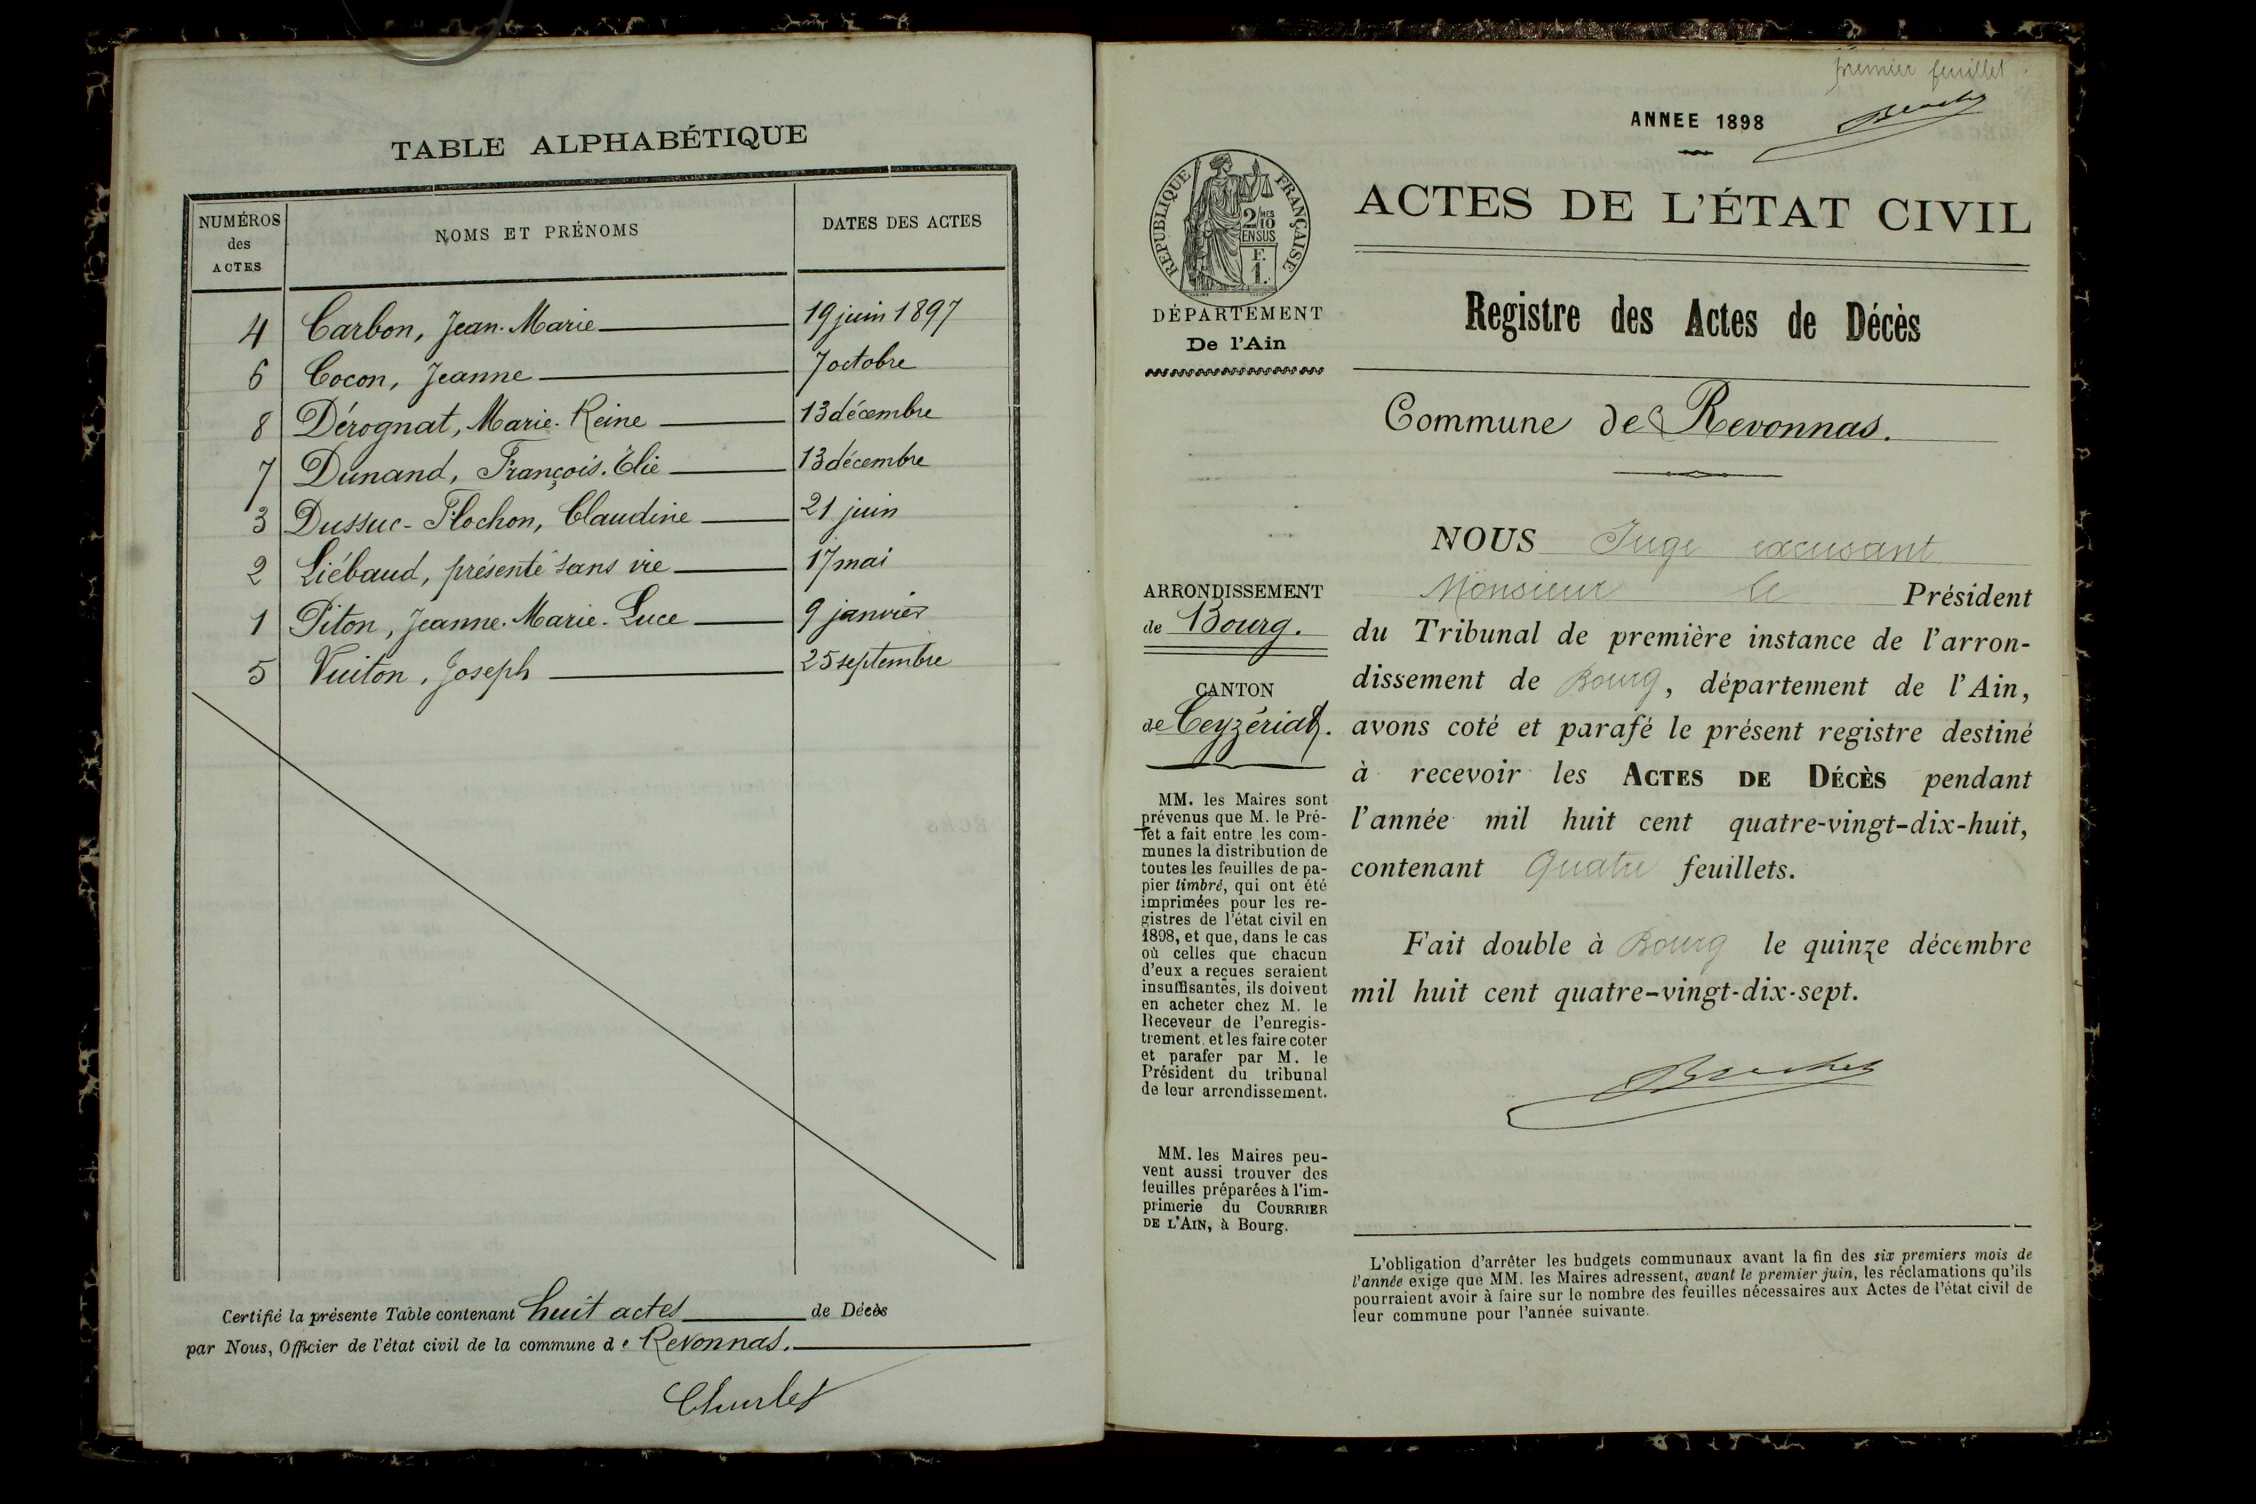 TABLE ALPHABÉTIQUE
NUMÉROS des ACTES
NOMS ET PRÉNOMS
DATES DES ACTES
4 Carbon, Jean-Marie 19 juin 1897
6 Cocon, Jeanne 7 octobre
8 Dérognat, Marie-Reine 13 décembre
7 Dunand, François-Élie 13 décembre
3 Dussuc-Flochon, Claudine 21 juin
2 Liébaud, présenté sans vie 17 mai
1 Piton, Jeanne-Marie-Luce 9 janvier
5 Vuiton, Joseph 25 septembre
Certifié la présente Table contenant huit actes de Décès
par Nous, Officier de l'état civil de la commune de Revonnas.
premier feuillet
ANNEE 1898
REPUBLIQUE FRANÇAISE
2/10 MES
EN SUS
F.
1.
DÉPARTEMENT
De l'Ain
ACTES DE L'ÉTAT CIVIL
Registre des Actes de Décès
Commune de Revonnas.
ARRONDISSEMENT
de Bourg.
CANTON
de Ceyzériat.
MM. les Maires sont
prévenus que M. le Pré-
fet a fait entre les com-
munes la distribution de
toutes les feuilles de pa-
pier timbré, qui ont été
imprimées pour les re-
gistres de l'état civil en
1898, et que, dans le cas
où celles que chacun
d'eux a reçues seraient
insuffisantes, ils doivent
en acheter chez M. le
Receveur de l'enregis-
trement, et les faire coter
et parafer par M. le
Président du tribunal
de leur arrondissement.
MM. les Maires peu-
vent aussi trouver des
feuilles préparées à l'im-
primerie du COURRIER
DE L'AIN, à Bourg.
NOUS Juge excusant
Monsieur le Président
du Tribunal de première instance de l'arron-
dissement de Bourg, département de l'Ain,
avons coté et parafé le présent registre destiné
à recevoir les ACTES DE DÉCÈS pendant
l'année mil huit cent quatre-vingt-dix-huit,
contenant Quatre feuillets.
Fait double à Bourg le quinze décembre
mil huit cent quatre-vingt-dix-sept.
L'obligation d'arrêter les budgets communaux avant la fin des six premiers mois de
l'année exige que MM. les Maires adressent, avant le premier juin, les réclamations qu'ils
pourraient avoir à faire sur le nombre des feuilles nécessaires aux Actes de l'état civil de
leur commune pour l'année suivante.